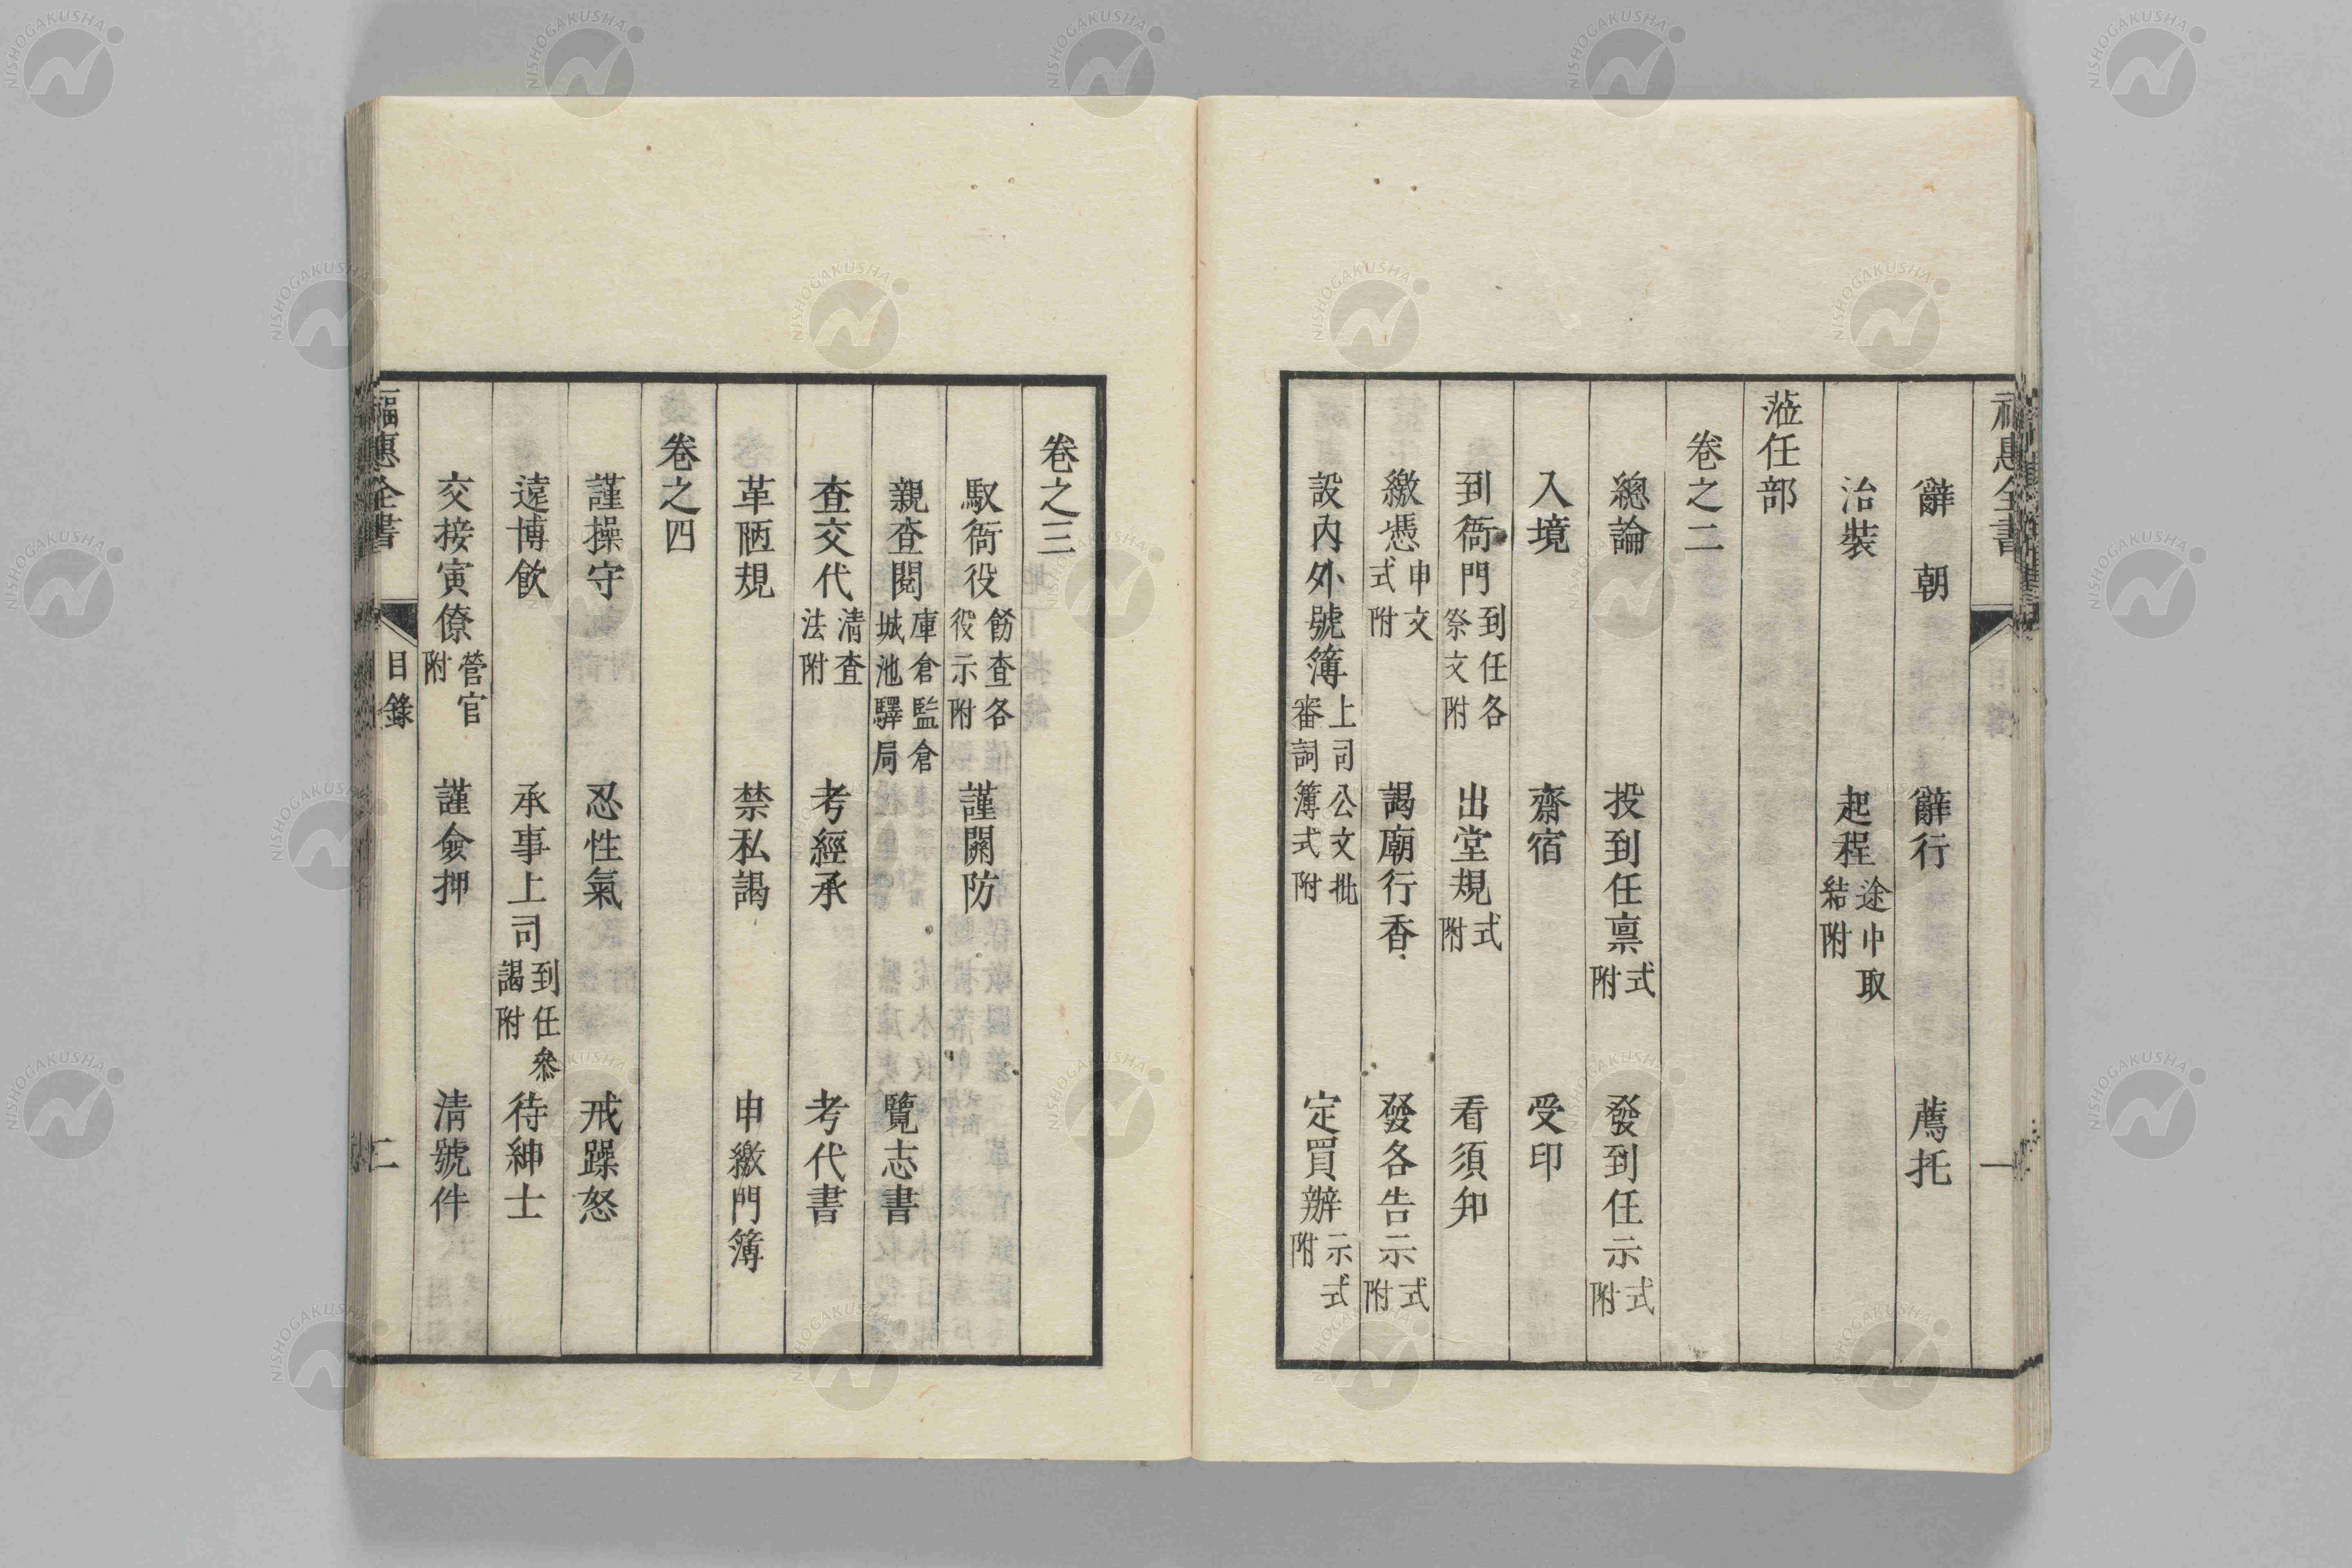 福惠全書 目錄 一
辭朝 辭行 薦托
治裝 起程 途中取結附
蒞任部
卷之二
總論 投到任禀 式附 發到任示 式附
入境 齋宿 受印
到衙門 到任各祭文附 出堂規 式附 看須知
繳憑 申文式附 謁廟行香 發各告示 式附
設內外號簿 上司公文批審詞簿式附 定買辦 示式附
卷之三
馭衙役 餝查各役示附 謹關防
親查閱 庫倉監倉城池驛局 覽志書
查交代 清查法附 考經承 考代書
革陋規 禁私謁 申繳門簿
卷之四
謹操守 忍性氣 戒躁怒
遠博飲 承事上司 到任叅謁附 待紳士
交接寅僚 營官附 謹僉押 清號件
福惠全書 目錄 二
NISHOGAKUSHA